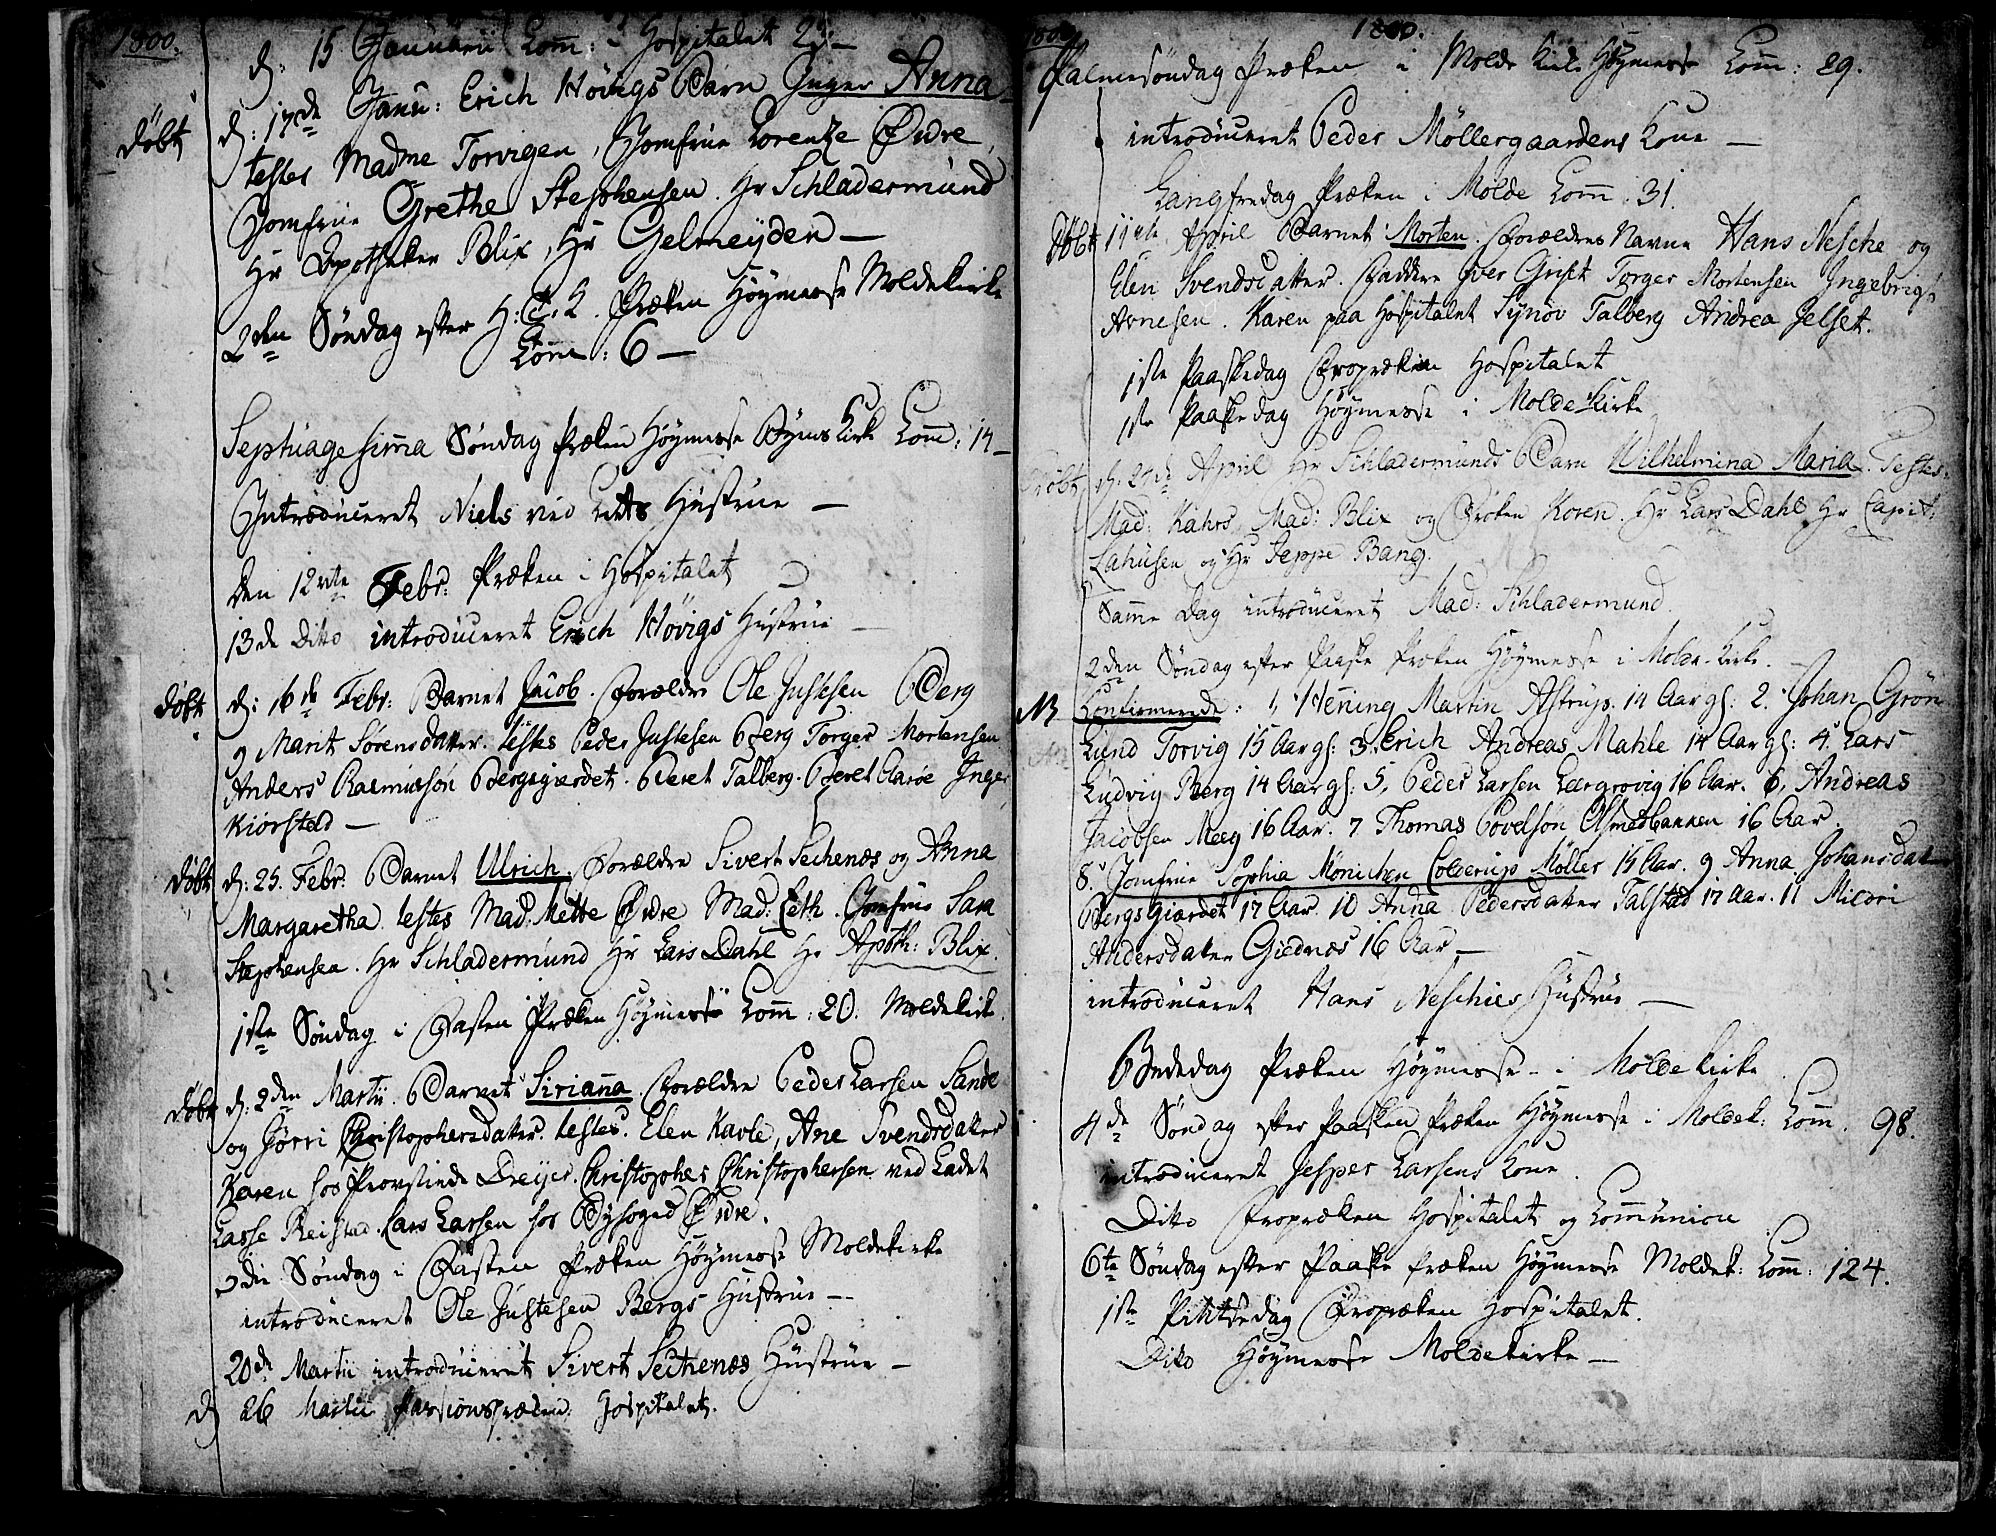 1800.
d: 15 Januarii Comm: i Hospitalet 2
døbt d: 17de Janu: Erich Høvigs Barn Inger Anna
testes Madme Torvigen, Jomfrue Lorentze Øvre
Jomfrue Grethe Stephensen. Hr Schladermund
Hr Apotheker Blix, Hr Gelmeyden —
2den Søndag efter H: 3 K. Præken Høymesse Moldekirke
Comm: 6 —
Septuagesima Søndag Præken Høymesse Kirke Comm: 14
Introduceret Niels ved Hustrue —
den 12vte Febr: Præken i Hospitalet
13de Ditto introduceret Erich Høvigs Hustrue —
døbt d: 16de Febr: Barnet Jacob. Forældre Ole Justesen Berg
og Marit Sørensdatter. testes Peder Justesen Berg Torger Mortensen
Anders Rasmusson Bergsgiærdet. Beret Talberg. Beret Aarøe Inger
Kiorstad —
døbt d: 25. Febr: Barnet Ulrich. Forældre Sivert Sechenæs og Anna
Margaretha. testes Mad: Mette Øvre Mad: Leth. Jomfrue Sara
Stephensen. Hr Schladermund Hr Lars Dahl Hr Apoth: Blix.
1ste Søndag i Fasten Præken Høymesse Comm: 20. Moldekirke.
døbt d: 2den Martii. Barnet Siriana. Forældre Peder Larsen Sande
og Jørri Christophersdatter. testes. Elen Kavle, Ane Svendsdatter
Karen hos Provstinde Dreyer. Christopher Christophersen ved Ladet
Lasse Reistad. Lars Larsen hos Byfoged Øvre.
3die Søndag i Fasten Præken Høymesse Moldekirke
introduceret Ole Justesen Bergs Hustrue —
20de Martii introduceret Sivert Sechenæs Hustrue —
d 26 Martii Passionspræken Hospitalet.
1800.
Palmesøndag Præken i Molde Kirke Høymesse Comm: 29.
introduceret Peder Møllergaardens Kone —
Langfredag Præken i Molde Comm: 31.
døbt 11te April Barnet Morten. Forældres Navne Hans Nesche og
Elen Svendsdatter. Faddere Iver Torger Mortensen Ingebrigt
Arnesen. Karen paa Hospitalet Synøv Talberg Andrea Jelset.
1ste Paaskedag Fropræken Hospitalet
1ste Paaskedag Høymesse i Molde Kirke
døbt d: April Hr Schladermunds Barn Wilhelmina Maria. Testes.
Mad: Kahrs, Mad: Blix og Frøken Koren. Hr Lars Dahl Hr Capit:
Lahusen og Hr Jeppe Bang.
Samme Dag introduceret Mad: Schladermund.
2den Søndag efter Paaske Præken Høymesse i Molde Kirke.
NB Confirmerede: 1, Hening Martin Astrup. 14 Aar gl: 2. Johan Grøn
Lund Torvig 15 Aar gl: 3. Erich Andreas Mahle 14 Aar gl: 4. Lars
Ludvig Berg 14 Aar gl: 5, Peder Larsen Leergrovig 16 Aar. 6, Andreas
Jacobsen Meeg 16 Aar. 7 Thomas Povelsøn Ølsmedbakken 16 Aar.
8. Jomfrue Sophia Mønichen Colderup Møller 15 Aar. 9 Anna Johansdatter
Bergsgiærdet 17 Aar. 10 Anna Pedersdatter Talstad 17 Aar. 11 Mildri
Andersdatter Giednæs 16 Aar —
introduceret Hans Neschies Hustrue —
Bededag Præken Høymesse i Molde Kirke
4de Søndag efter Paaske Præken Høymesse i Moldek: Comm. 98.
introduceret Jesper Larsens Kone.
Ditto Fropræken Hospitalet og Communion
6te Søndag efter Paaske Præken Høymesse Moldek: Comm: 124.
1ste Pintsedag Fropræken Hospitalet.
Ditto Høymesse Moldekirke —